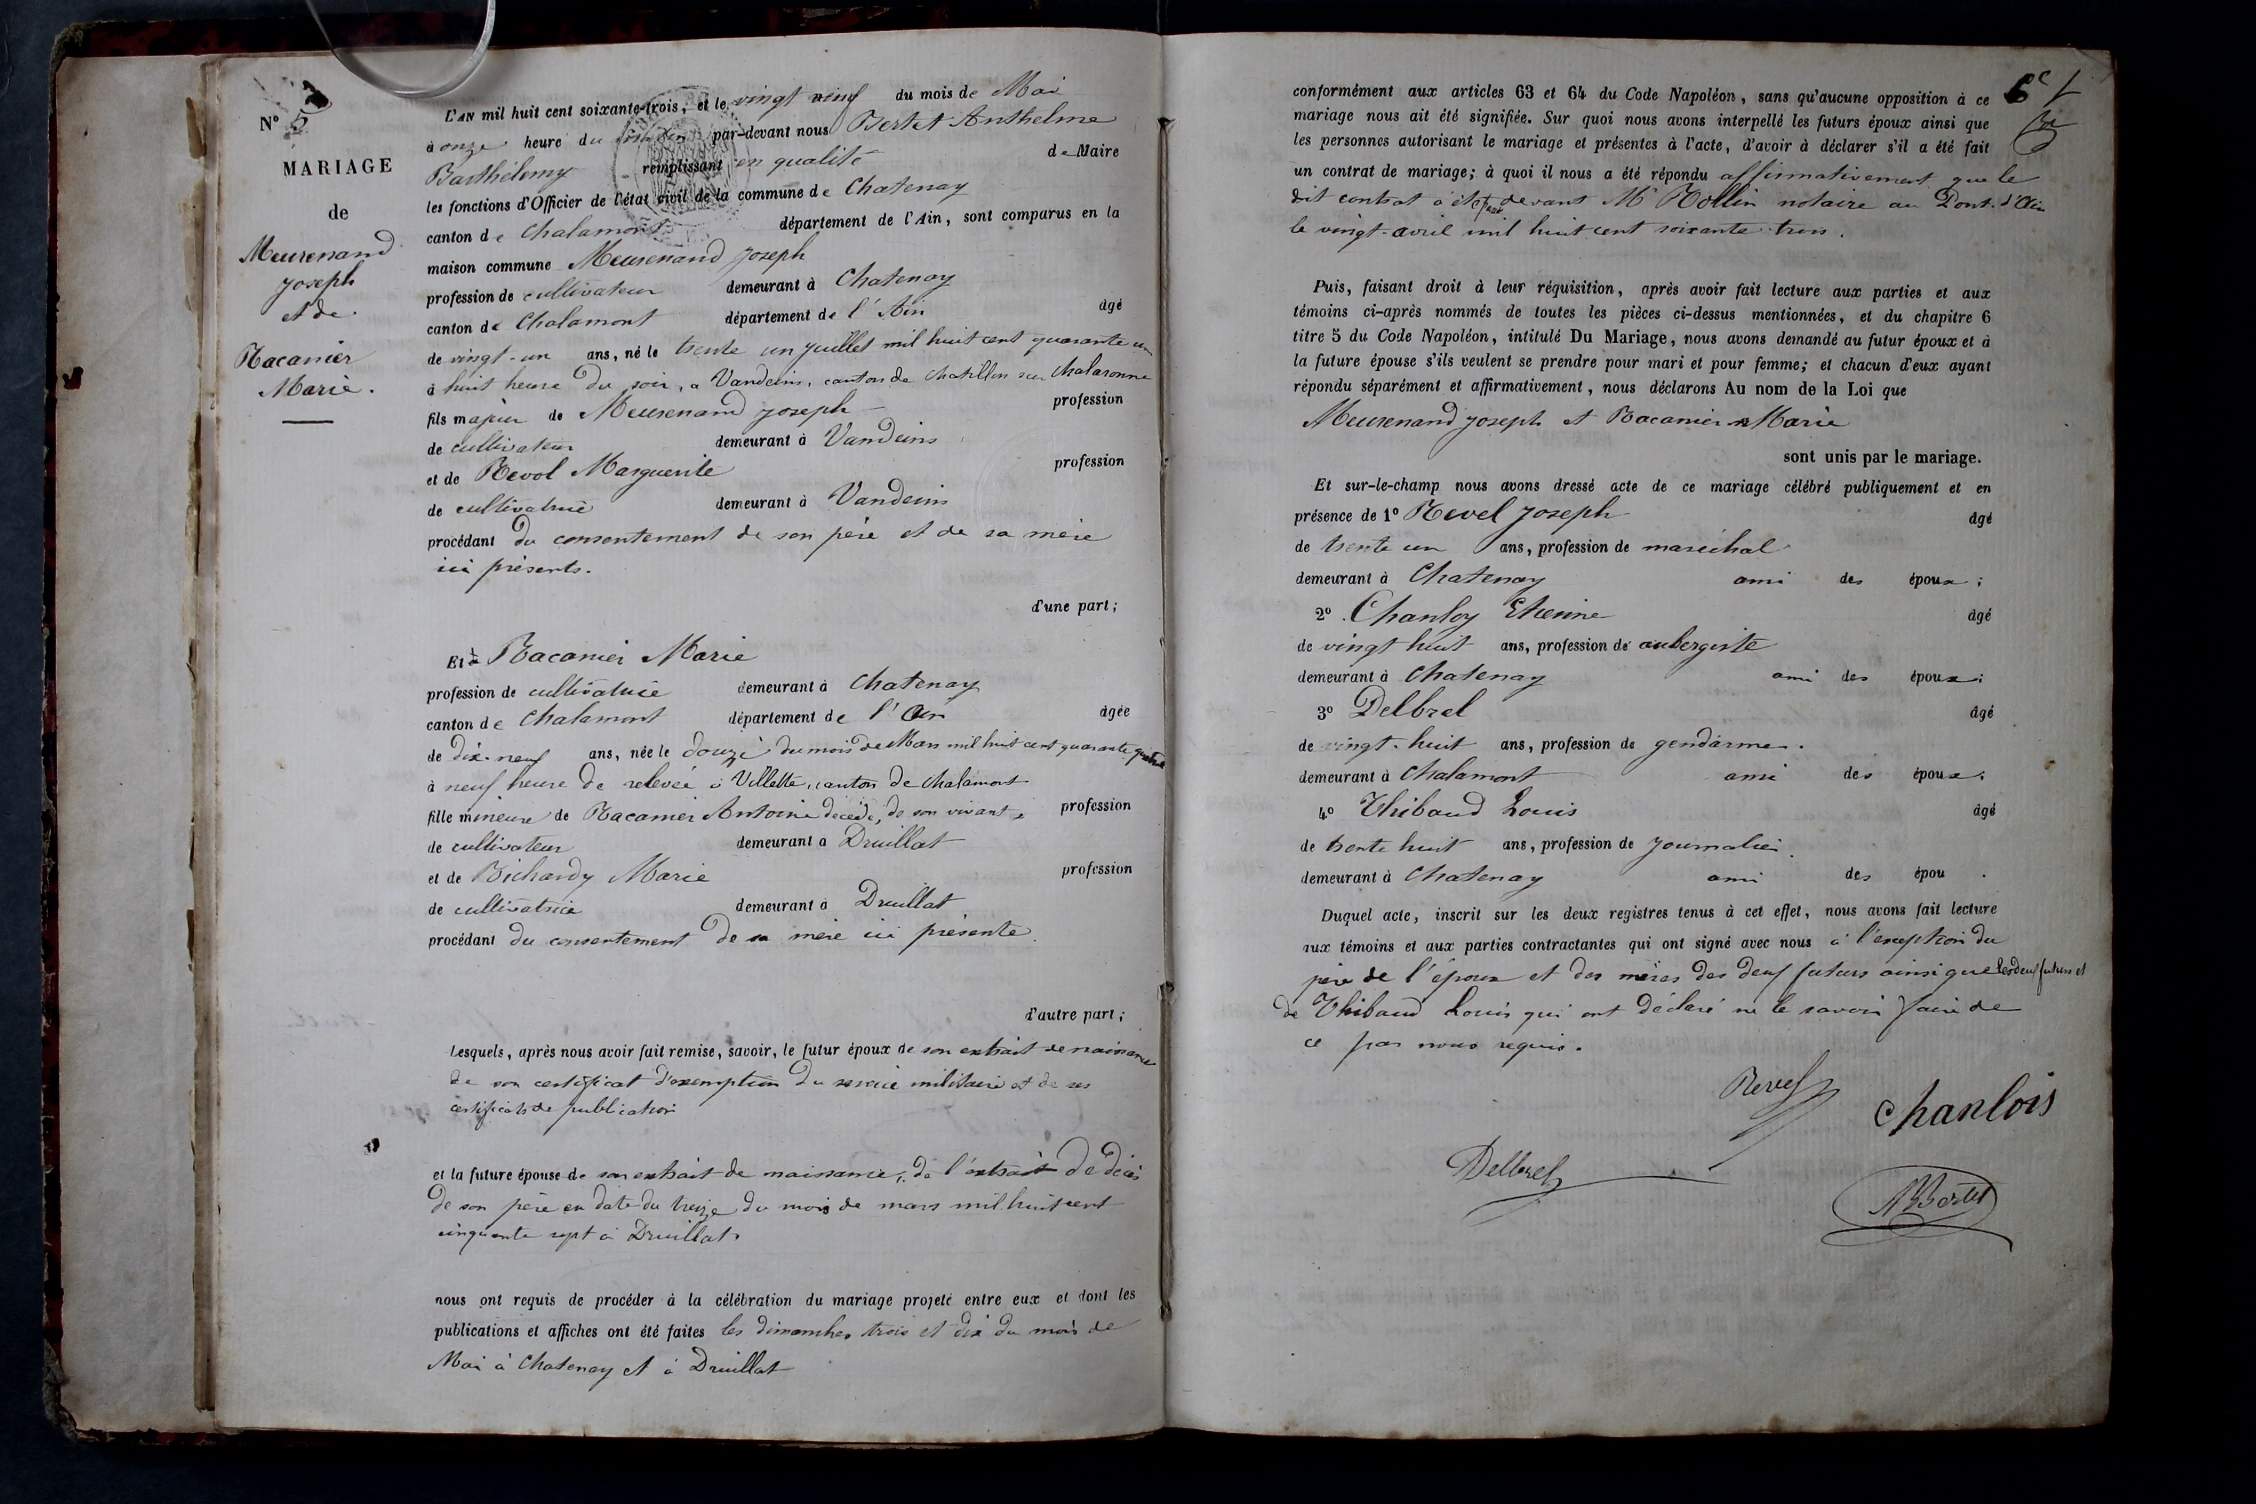 N° 5
MARIAGE
de
Meurenand
Joseph
et de
Racanier
Marie.
L'AN mil huit cent soixante-trois, et le vingt neuf du mois de Mai
à onze heure du matin par-devant nous Bertet Anthelme
Barthélemy remplissant en qualité de Maire
les fonctions d'Officier de l'état civil de la commune de Chatenay
canton de Chalamont département de l'Ain, sont comparus en la
maison commune Meurenand Joseph
profession de cultivateur demeurant à Chatenay
canton de Chalamont département de l'Ain âgé
de vingt-un ans, né le trente un juillet mil huit cent quarante un
à huit heure du soir, a Vandeins, canton de Chatillon sur Chalaronne
fils majeur de Meurenand Joseph profession
de cultivateur demeurant à Vandeins
et de Revol Marguerite profession
de cultivatrice demeurant à Vandeins
procédant du consentement de son père et de sa mère
ici présents.
d'une part;
Et à Racanier Marie
profession de cultivatrice demeurant à Chatenay
canton de Chalamont département de l'Ain âgée
de dix-neuf ans, née le douze du mois de Mars mil huit cent quarante quatre
à neuf heure de relevée à Villette, canton de Chalamont
fille mineure de Racanier Antoine décédé, de son vivant, profession
de cultivateur demeurant à Druillat
et de Bichardy Marie profession
de cultivatrice demeurant à Druillat
procédant du consentement de sa mère ici présente.
d'autre part;
Lesquels, après nous avoir fait remise, savoir, le futur époux de son extrait de naissance
de son certificat d'exemption du service militaire et de ses
certificats de publication
et la future épouse de son extrait de naissance, de l'extrait de décès
de son père en date du treize du mois de mars mil huit cent
cinquante sept à Druillat.
nous ont requis de procéder à la célébration du mariage projeté entre eux et dont les
publications et affiches ont été faites les dimanches trois et dix du mois de
Mai à Chatenay et à Druillat
conformément aux articles 63 et 64 du Code Napoléon, sans qu'aucune opposition à ce
mariage nous ait été signifiée. Sur quoi nous avons interpellé les futurs époux ainsi que
les personnes autorisant le mariage et présentes à l'acte, d'avoir à déclarer s'il a été fait
un contrat de mariage; à quoi il nous a été répondu affirmativement que le
dit contrat a été passé devant Mr Rollin notaire au Pont-d'Ain
le vingt-avril mil huit cent soixante-trois.
Puis, faisant droit à leur réquisition, après avoir fait lecture aux parties et aux
témoins ci-après nommés de toutes les pièces ci-dessus mentionnées, et du chapitre 6
titre 5 du Code Napoléon, intitulé Du Mariage, nous avons demandé au futur époux et à
la future épouse s'ils veulent se prendre pour mari et pour femme; et chacun d'eux ayant
répondu séparément et affirmativement, nous déclarons Au nom de la Loi que
Meurenand Joseph et Racanier Marie
sont unis par le mariage.
Et sur-le-champ nous avons dressé acte de ce mariage célébré publiquement et en
présence de 1° Revel Joseph âgé
de trente un ans, profession de maréchal
demeurant à Chatenay ami des époux;
2° Chanloy Etienne âgé
de vingt huit ans, profession de aubergiste
demeurant à Chatenay ami des époux;
3° Delbrel âgé
de vingt-huit ans, profession de gendarme.
demeurant à Chalamont ami des époux;
4° Thibaud Louis âgé
de trente huit ans, profession de Journalier.
demeurant à Chatenay ami des épou .
Duquel acte, inscrit sur les deux registres tenus à cet effet, nous avons fait lecture
aux témoins et aux parties contractantes qui ont signé avec nous à l'exception du
père de l'époux et des mères des deux futurs ainsi que les deux futurs et
de Thibaud Louis qui ont déclaré ne le savoir faire de
ce par nous requis.
Revel
Chanlois
Delbrel
ABBertet